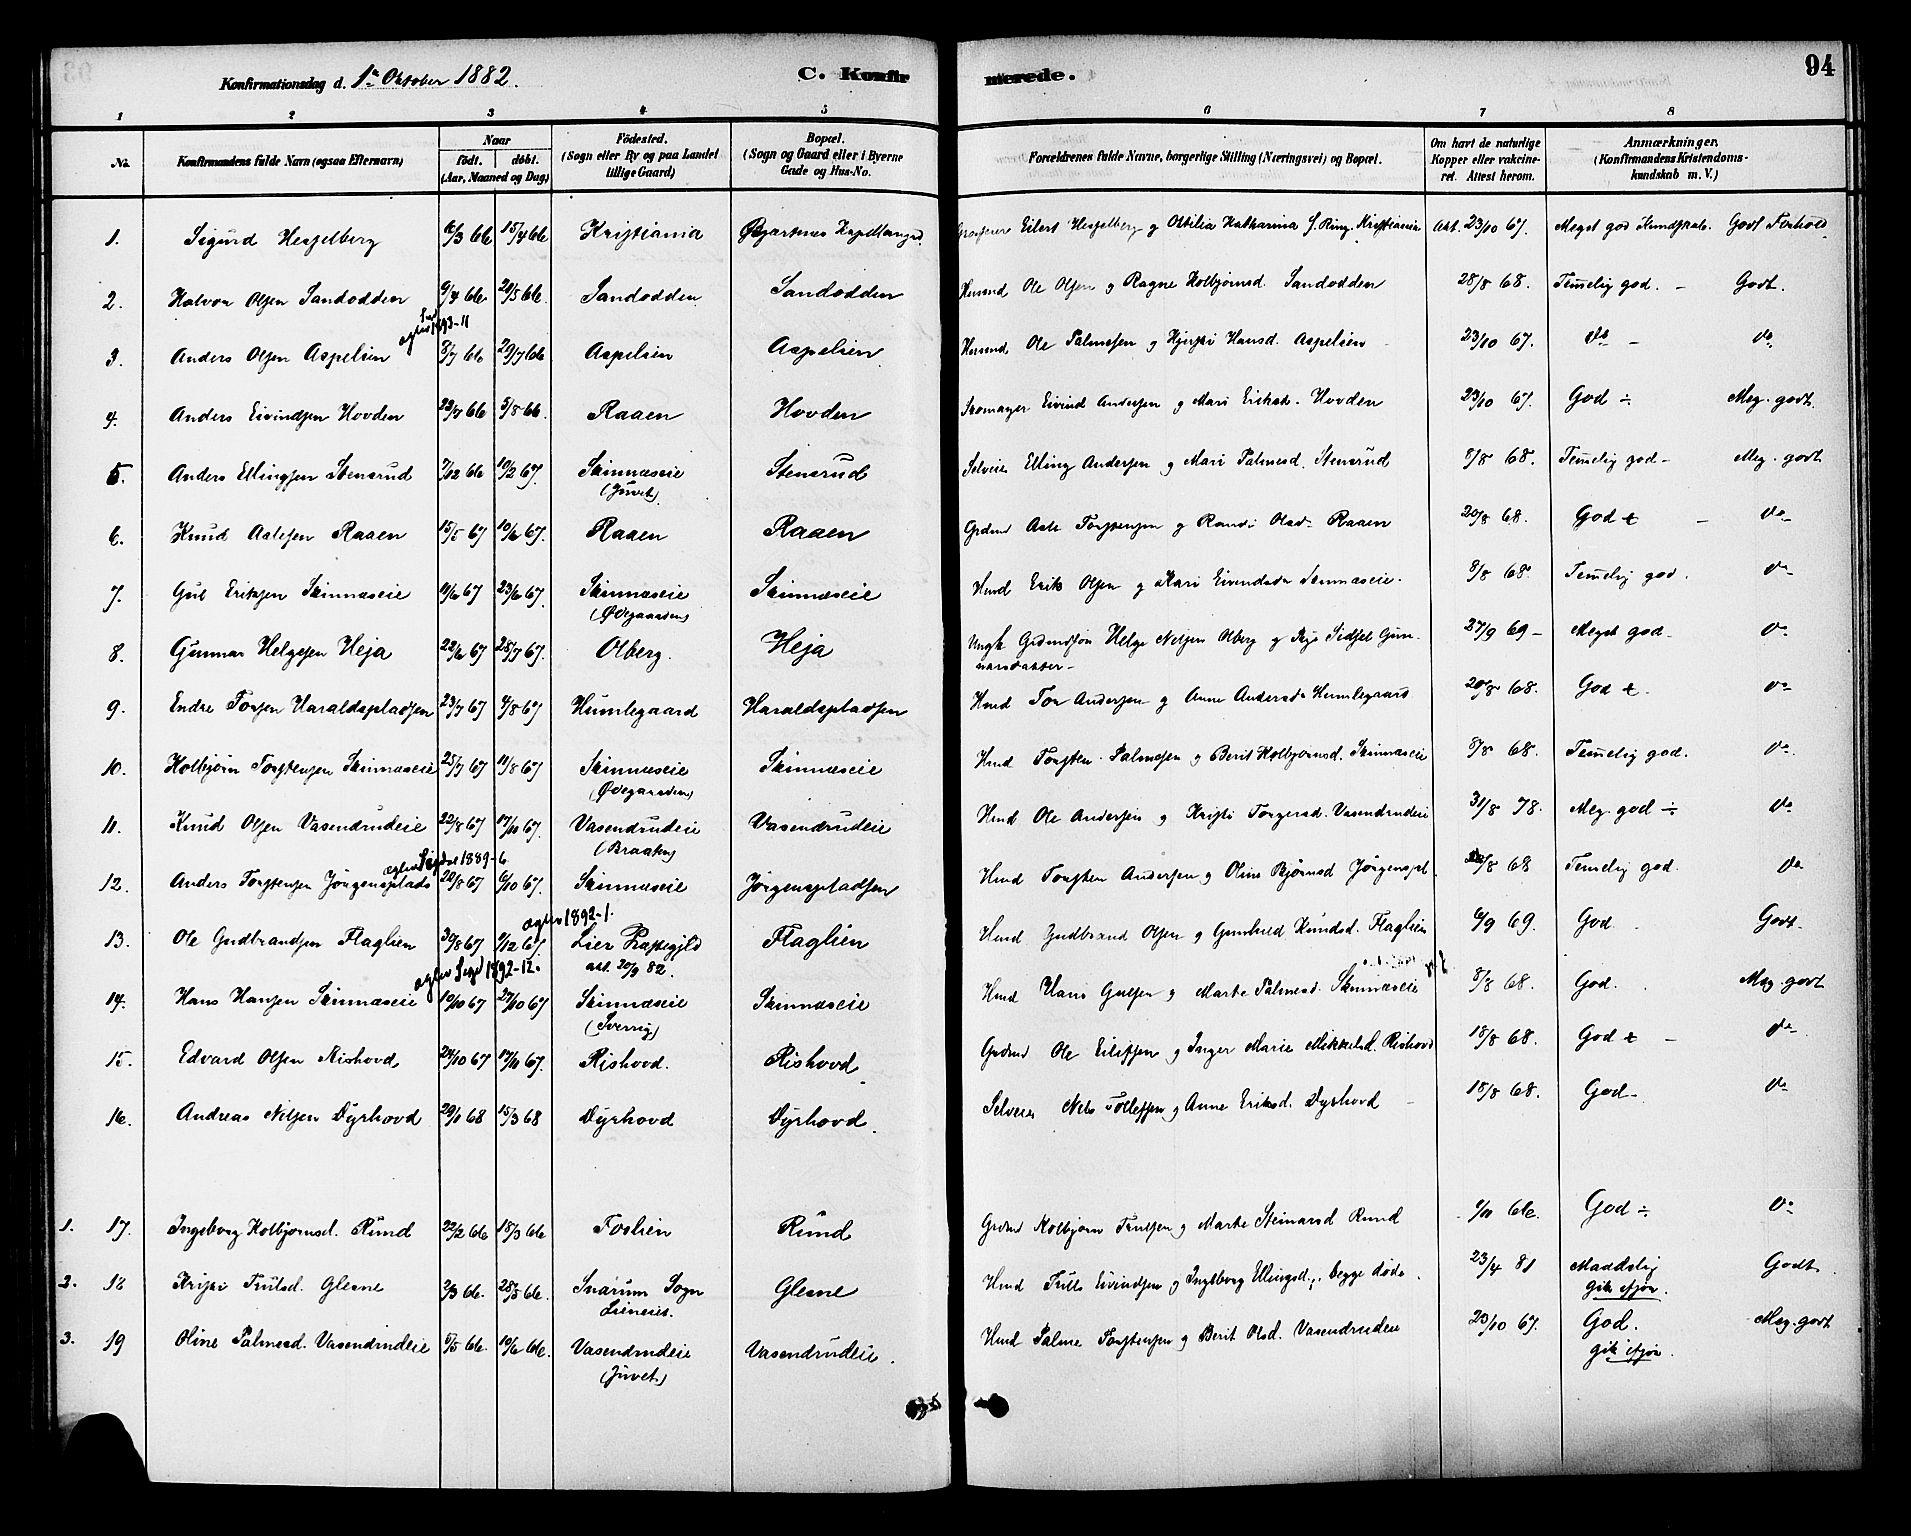 Konfirmationsdag d. 1ste Oktober 1882.
C. Konfirmerede.
94
1 2 3 4 5 6 7 8
No.
Konfirmandens fulde Navn (ogsaa Efternavn)
Naar
födt. döbt.
(Aar, Maaned og Dag)
Födested.
(Sogn eller By og paa Landet
tillige Gaard)
Bopæl.
(Sogn og Gaard eller i Byerne
Gade og Hus-No.
Forældrenes fulde Navne, borgerlige Stilling (Næringsvei) og Bopæl.
Om havt de naturlige
Kopper eller vakcine-
ret. Attest herom.
Anmærkninger.
(Konfirmandens Kristendoms-
kundskab m. V.)
1. Sigurd Hesselberg 15/4 66 Kristiania Eilert Hesselberg og Ottilia Katharina f. Ring. Kristiania Att. 23/10 67. Meget god Kundskab. Godt Forhold
2. Halvor Olsen Sandodden 9/4 66. 20/5 66. Sandodden Sandodden Husmd Ole Olsen og Ragne Kolbjørnsd. Sandodden 28/8 68. Temmelig god. - Godt.
1893-11
3. Anders Olsen Aspelien 8/7 66 29/7 66 Aspelien Aspelien Husmd Ole Palmesen og Kjersti Hansd. Aspelien 23/10 67. do - do
4. Anders Eivindsen Hovden 23/7 66 5/8 66. Raaen Hovden Skomager Eivind Andersen og Mari Eriksd. Hovden 23/10 67. God ÷ Meg. godt.
5. Anders Ellingsen Stensrud 7/12 66 10/2 67. Skinnæseie Stensrud Selveier Elling Andersen og Mari Palmesd. Stensrud 8/8 68. Temmelig god - Meg. godt
(Juvet)
6. Knud Aslesen Raaen 15/5 67 10/6 67. Raaen Raaen Grdmd Asle Torstensen og Randi Olsd. Raaen 20/8 68. God ± - do
7. Gul Eriksen Skinnæseie 11/6 67 23/6 67. Skinnæseie Skinnæseie Hmd Erik Olsen og Kari Eivendsdr Skinnæseie. 8/8 68. Temmelig god. do
(Ødegaarden)
8. Gunnar Helgesen Heja 22/6 67 28/7 67. Olberg. Heja Ungk. Grdmdssøn Helge Nelsen Olberg og Pige Sidsel Gun-
narsdatter- 27/9 69 - Meget god - do
9. Endre Torsen Haraldspladsen 23/7 67 4/8 67 Humlegaard Haraldspladsen Hmd Tor Andersen og Anne Andersdr Humlegaard 20/8 68. God ±. do
10. Kolbjørn Torstensen Skinnæseie 25/7 67 11/8 67 Skinnæseie Skinnæseie Hmd Torsten Palmesen og Berit Kolbjørnsd. Skinnæseie 8/8 68. Temmelig god. do
(Ødegaarden)
11. Knud Olsen Vasendrudeie 22/8 67 17/11 67. Vasendrudeie Vasendrudeie Hmd Ole Andersen og Kristi Torgersd. Vasendrudeie 31/8 78. Meg. god ÷ do
(Braaten)
Sigdal 1889-6
12. Anders Torstensen Jörgensplads 20/8 67 6/10 67. Skinnæseie Jörgenspladsen Hmd Torsten Andersen og Oline Bjørnsd Jörgenspl. 68 Temelig god. do
1892-1.
13. Ole Gudbrandsen Flaglien 30/8 67 67. Lier Præstegjld Flaglien Hmd Gudbrand Olsen og Gunhild Knudsd. Flaglien 6/9 69. God. Godt.
att. 20/9 82.
Sigd 1892-12.
14. Hans Hansen Skinnæseie 10/10 67 27/10 67 Skinnæseie Skinnæseie Hmd Hans Gulsen og Marte Palmesd. Skinnæseie 8/8 68. God. Meg. godt
(Sverrig)
15. Edvard Olsen Rishovd 17/11 67. Rishovd. Rishovd Grdmd Ole Eilefsen og Inger Marie Mikkelsd. Rishovd 18/8 68. God ± - do
16. Andreas Nelsen Dyrhovd 29/1 68 15/3 68 Dyrhovd Dyrhovd. Selveier Nels Tollefsen og Anne Eriksd. Dyrhovd 18/8 68. God - do
1. 17. Ingeborg Kolbjørnsd. Rund 22/2 66 18/3 66 Foslien Rund Grdmd Kolbjørn Trulsen og Marte Steinarsd Rund 66. God ÷ do
2. 18 Kristi Trulsd. Glesne 2/3 66. 28/5 66. Snarum Sogn Glesne Hmd Truls Eivindsen og Ingeborg Ellingsd., begge döde. 23/4 81 Maadelig Godt
gik ifjor.
3. 19 Oline Palmesd. Vasendrudeie 6/5 66. 10/6 66. Vasendrudeie Vasendrudeie. Hmd Palme Torstensen og Berit Olsd. Vasendrudeie 23/10 67. God. Meg. godt
(Juvet) gik ifjor.